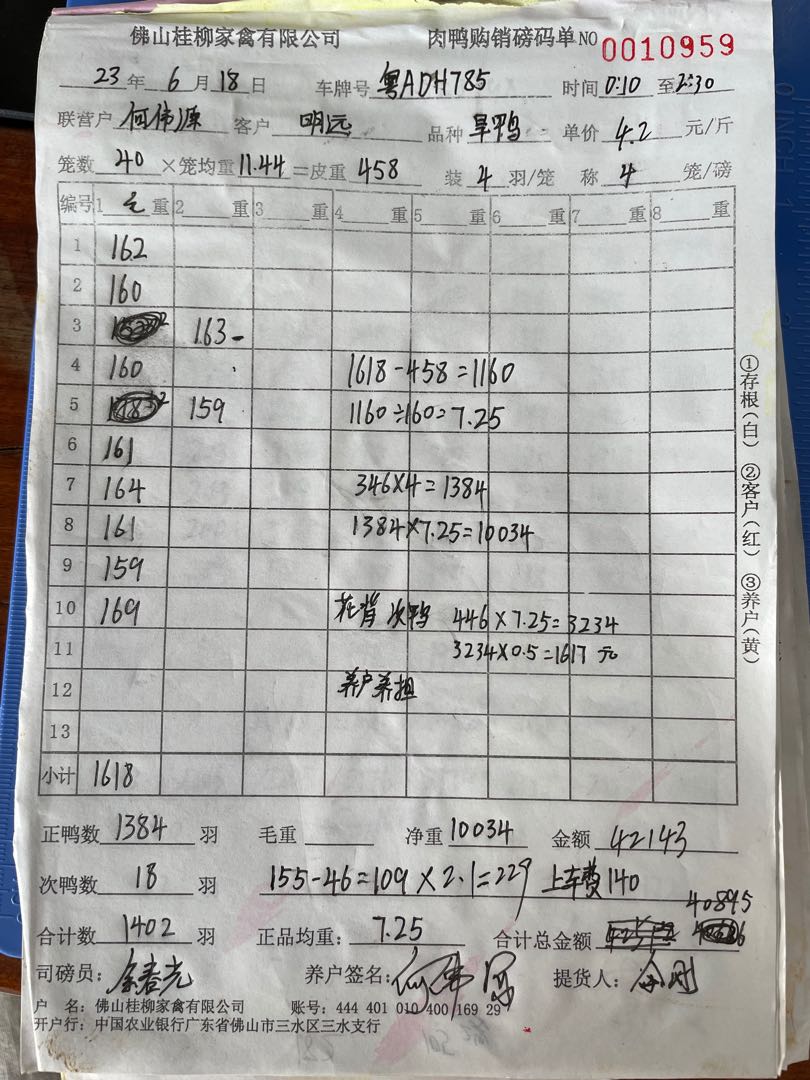 佛山桂柳家禽有限公司 肉鸭购销磅码单 NO 0010959
23年6月18日 车牌号 粤ADH785 时间 0:10 至 2:30
联营户 何伟源 客户 明远 品种 旱鸭 单价 4.2 元/斤
笼数 40 ×笼均重 11.44 =皮重 458 装 4 羽/笼 称 4 笼/磅
编号 1 毛 重 2 重 3 重 4 重 5 重 6 重 7 重 8 重
1 162
2 160
3 163
4 160 1618-458=1160
5 159 1160÷160=7.25
6 161
7 164 346×4=1384
8 161 1384×7.25=10034
9 159
10 169 花背次鸭 446×7.25=3234
11 3234×0.5=1617元
12 养户养担
13
小计 1618
①存根(白) ②客户(红) ③养户(黄)
正鸭数 1384 羽 毛重 净重 10034 金额 42143
次鸭数 18 羽 155-46=109×2.1=229 上车费140
40895
合计数 1402 羽 正品均重: 7.25 合计总金额
司磅员: 养户签名: 何伟源 提货人:
户 名: 佛山桂柳家禽有限公司 账号: 444 401 010 400 169 29
开户行: 中国农业银行广东省佛山市三水区三水支行